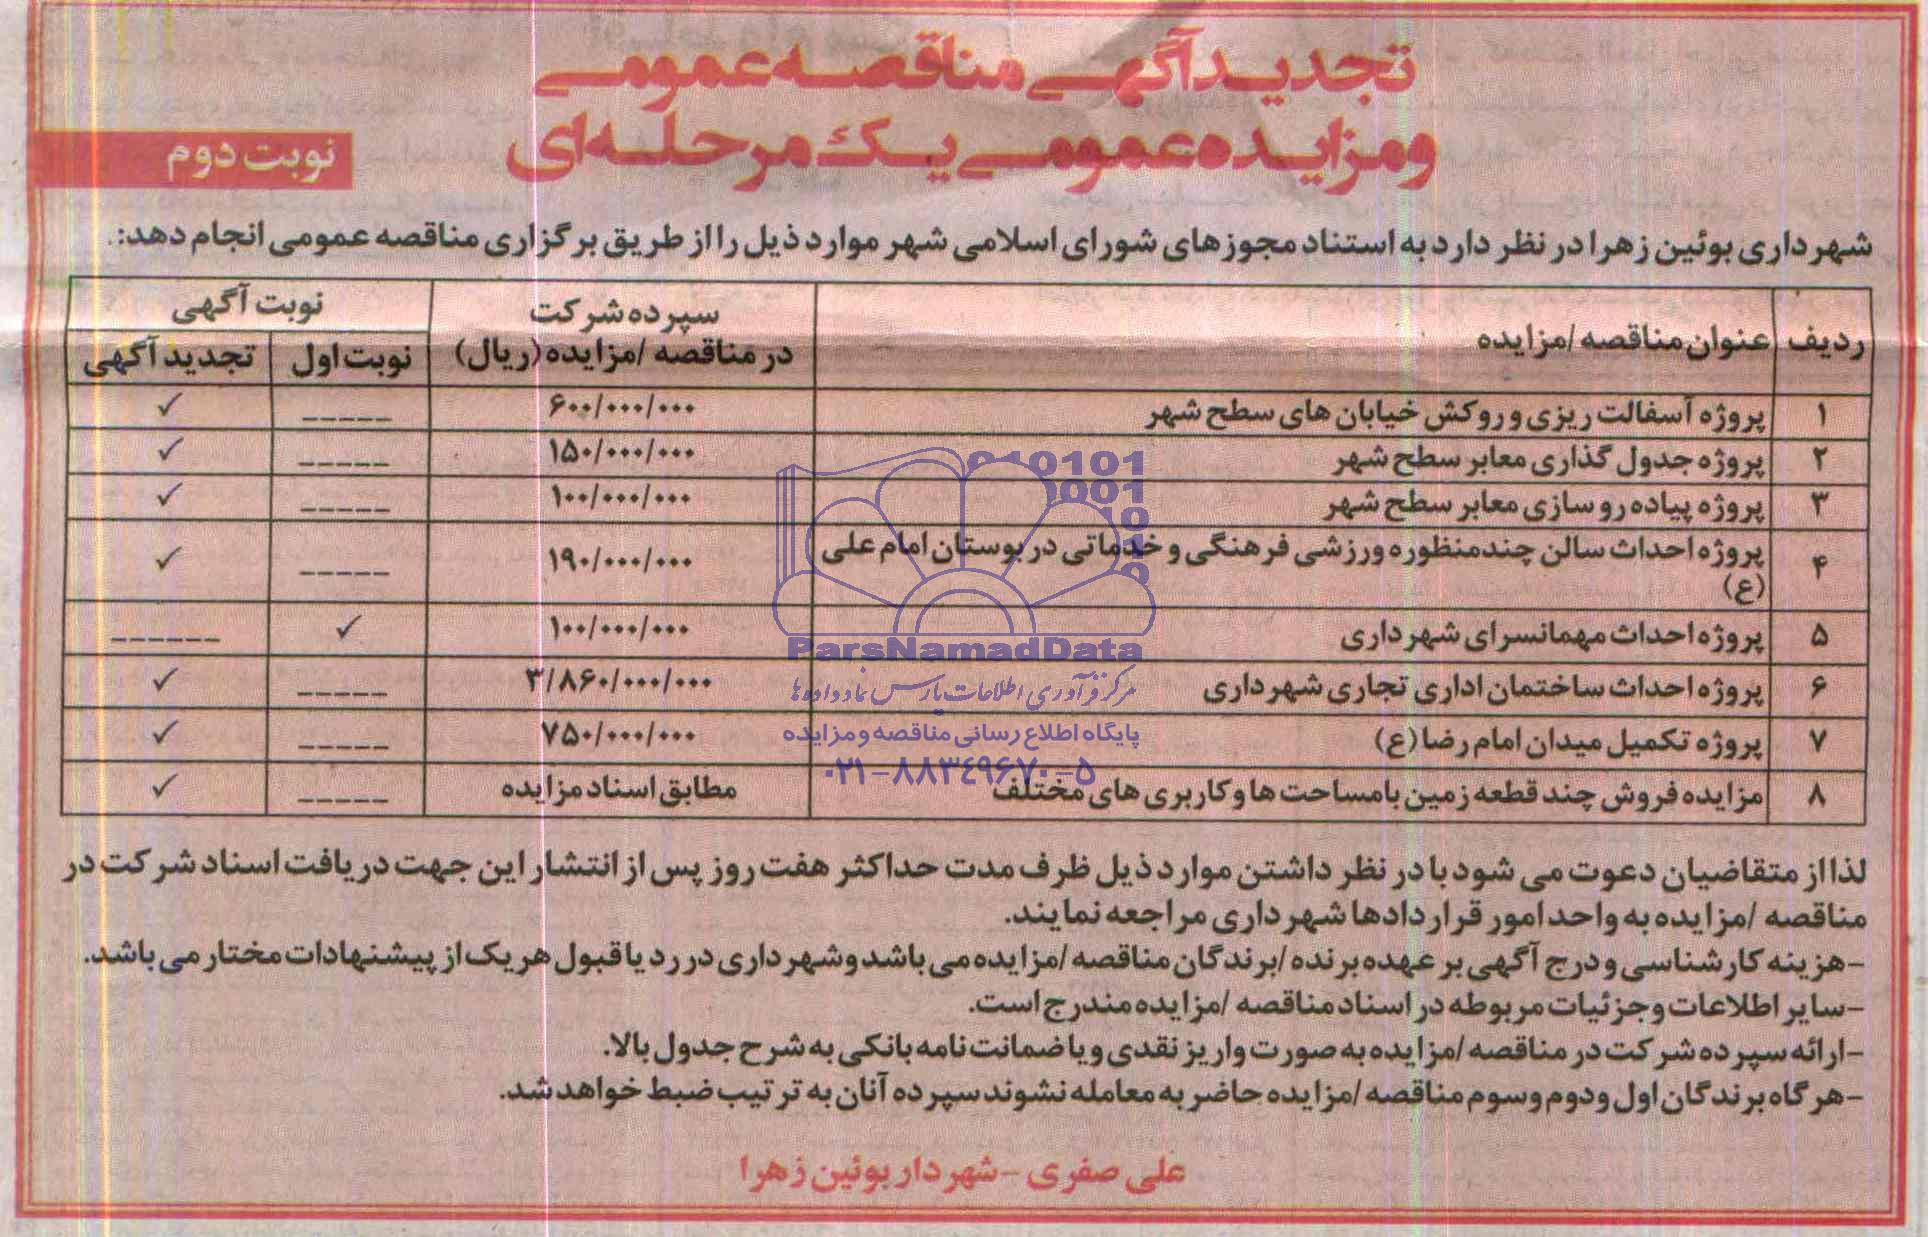 تجدید آگهی مناقصه عمومی
و مزایده عمومی یک مرحله ای
نوبت دوم
شهرداری بوئین زهرا در نظر دارد به استناد مجوزهای شورای اسلامی شهر موارد ذیل را از طریق برگزاری مناقصه عمومی انجام دهد:
ردیف | عنوان مناقصه /مزایده | سپرده شرکت در مناقصه /مزایده (ریال) | نوبت آگهی
نوبت اول | تجدید آگهی
۱ | پروژه آسفالت ریزی و روکش خیابان های سطح شهر | ۶۰۰/۰۰۰/۰۰۰ | ----- | ✓
۲ | پروژه جدول گذاری معابر سطح شهر | ۱۵۰/۰۰۰/۰۰۰ | ----- | ✓
۳ | پروژه پیاده رو سازی معابر سطح شهر | ۱۰۰/۰۰۰/۰۰۰ | ----- | ✓
۴ | پروژه احداث سالن چندمنظوره ورزشی فرهنگی و خدماتی در بوستان امام علی (ع) | ۱۹۰/۰۰۰/۰۰۰ | ----- | ✓
۵ | پروژه احداث مهمانسرای شهرداری | ۱۰۰/۰۰۰/۰۰۰ | ✓ | ------
۶ | پروژه احداث ساختمان اداری تجاری شهرداری | ۳/۸۶۰/۰۰۰/۰۰۰ | ----- | ✓
۷ | پروژه تکمیل میدان امام رضا (ع) | ۷۵۰/۰۰۰/۰۰۰ | ----- | ✓
۸ | مزایده فروش چند قطعه زمین با مساحت ها و کاربری های مختلف | مطابق اسناد مزایده | ----- | ✓
010101
001
10
ParsNamadData
مرکز فرآوری اطلاعات پارس نماد داده ها
پایگاه اطلاع رسانی مناقصه و مزایده
۰۲۱-۸۸۳۴۹۶۷۰-۵
لذا از متقاضیان دعوت می شود با در نظر داشتن موارد ذیل ظرف مدت حداکثر هفت روز پس از انتشار این جهت دریافت اسناد شرکت در
مناقصه /مزایده به واحد امور قراردادها شهرداری مراجعه نمایند.
-هزینه کارشناسی و درج آگهی بر عهده برنده /برندگان مناقصه /مزایده می باشد و شهرداری در رد یا قبول هر یک از پیشنهادات مختار می باشد.
-سایر اطلاعات و جزئیات مربوطه در اسناد مناقصه /مزایده مندرج است.
-ارائه سپرده شرکت در مناقصه /مزایده به صورت واریز نقدی و یا ضمانت نامه بانکی به شرح جدول بالا.
-هرگاه برندگان اول و دوم و سوم مناقصه /مزایده حاضر به معامله نشوند سپرده آنان به ترتیب ضبط خواهد شد.
علی صفری -شهردار بوئین زهرا